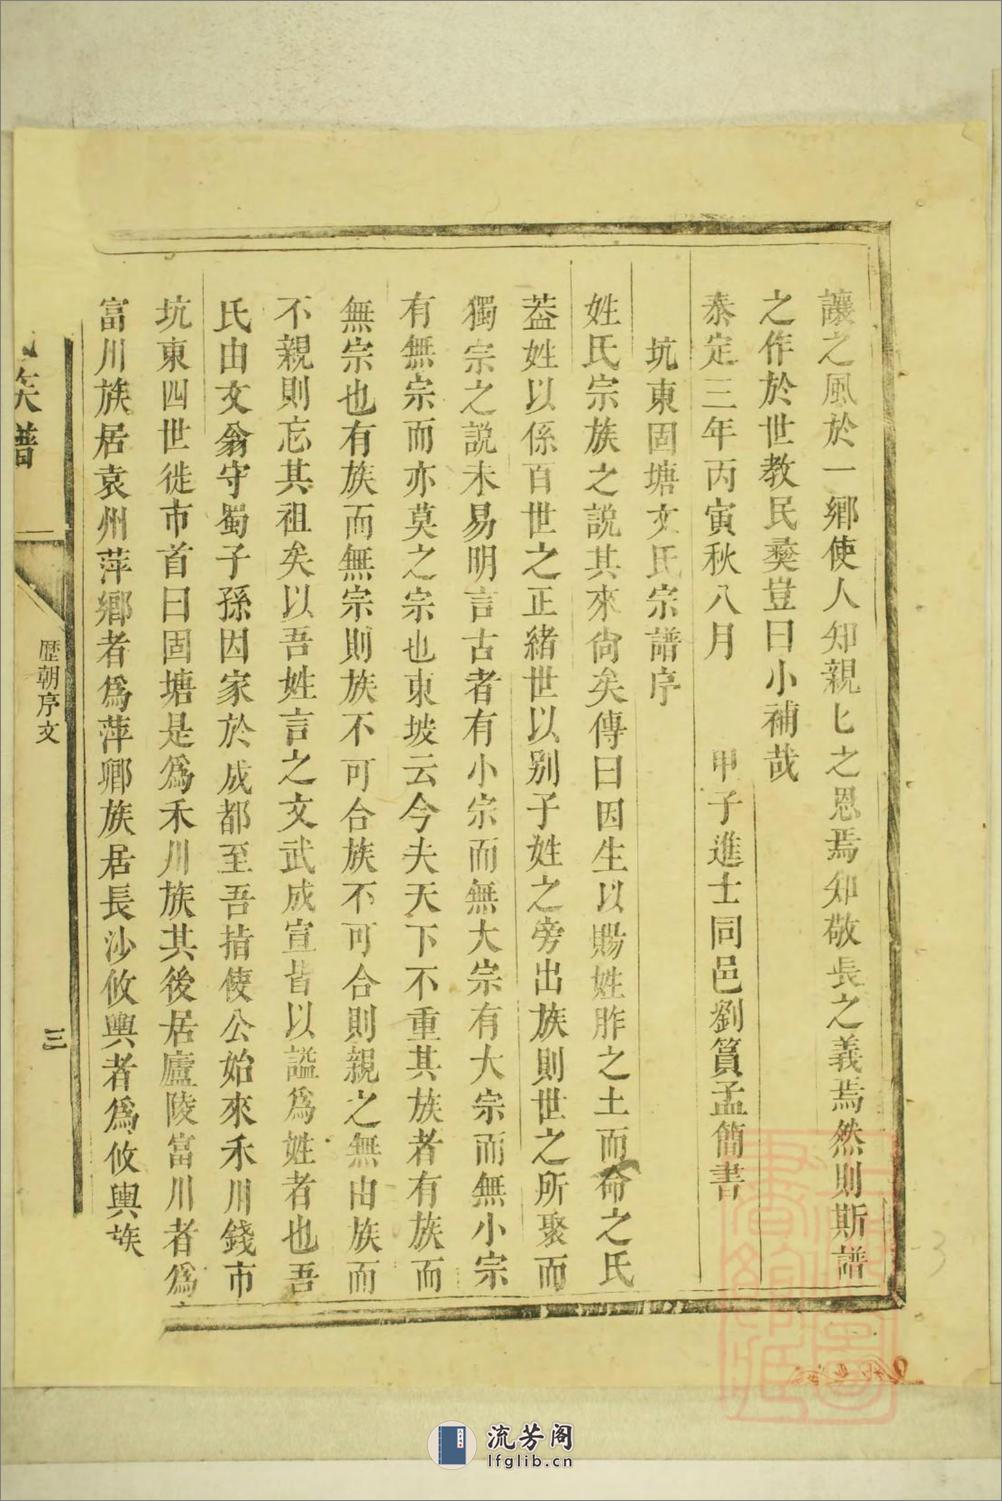 讓之風於一鄉使人知親匕之恩焉知敬長之義焉然則斯譜
之作於世教民彜豈曰小補哉
泰定三年丙寅秋八月 甲子進士同邑劉篔孟簡書
坑東固塘文氏宗譜序
姓氏宗族之說其來尙矣傳曰因生以賜姓胙之土而命之氏
葢姓以係百世之正緒世以别子姓之旁出族則世之所聚而
獨宗之説未易明言古者有小宗而無大宗有大宗而無小宗
有無宗而亦莫之宗也東坡云今夫天下不重其族者有族而
無宗也有族而無宗則族不可合族不可合則親之無由族而
不親則忘其祖矣以吾姓言之文武成宣皆以謚爲姓者也吾
氏由文翁守蜀子孫因家於成都至吾指使公始來禾川錢市
坑東四世徙市首曰固塘是爲禾川族其後居廬陵富川者爲
富川族居袁州萍鄉者爲萍鄉族居長沙攸輿者爲攸輿族
族譜
歴朝序文
三
3
流芳阁
lfglib.cn